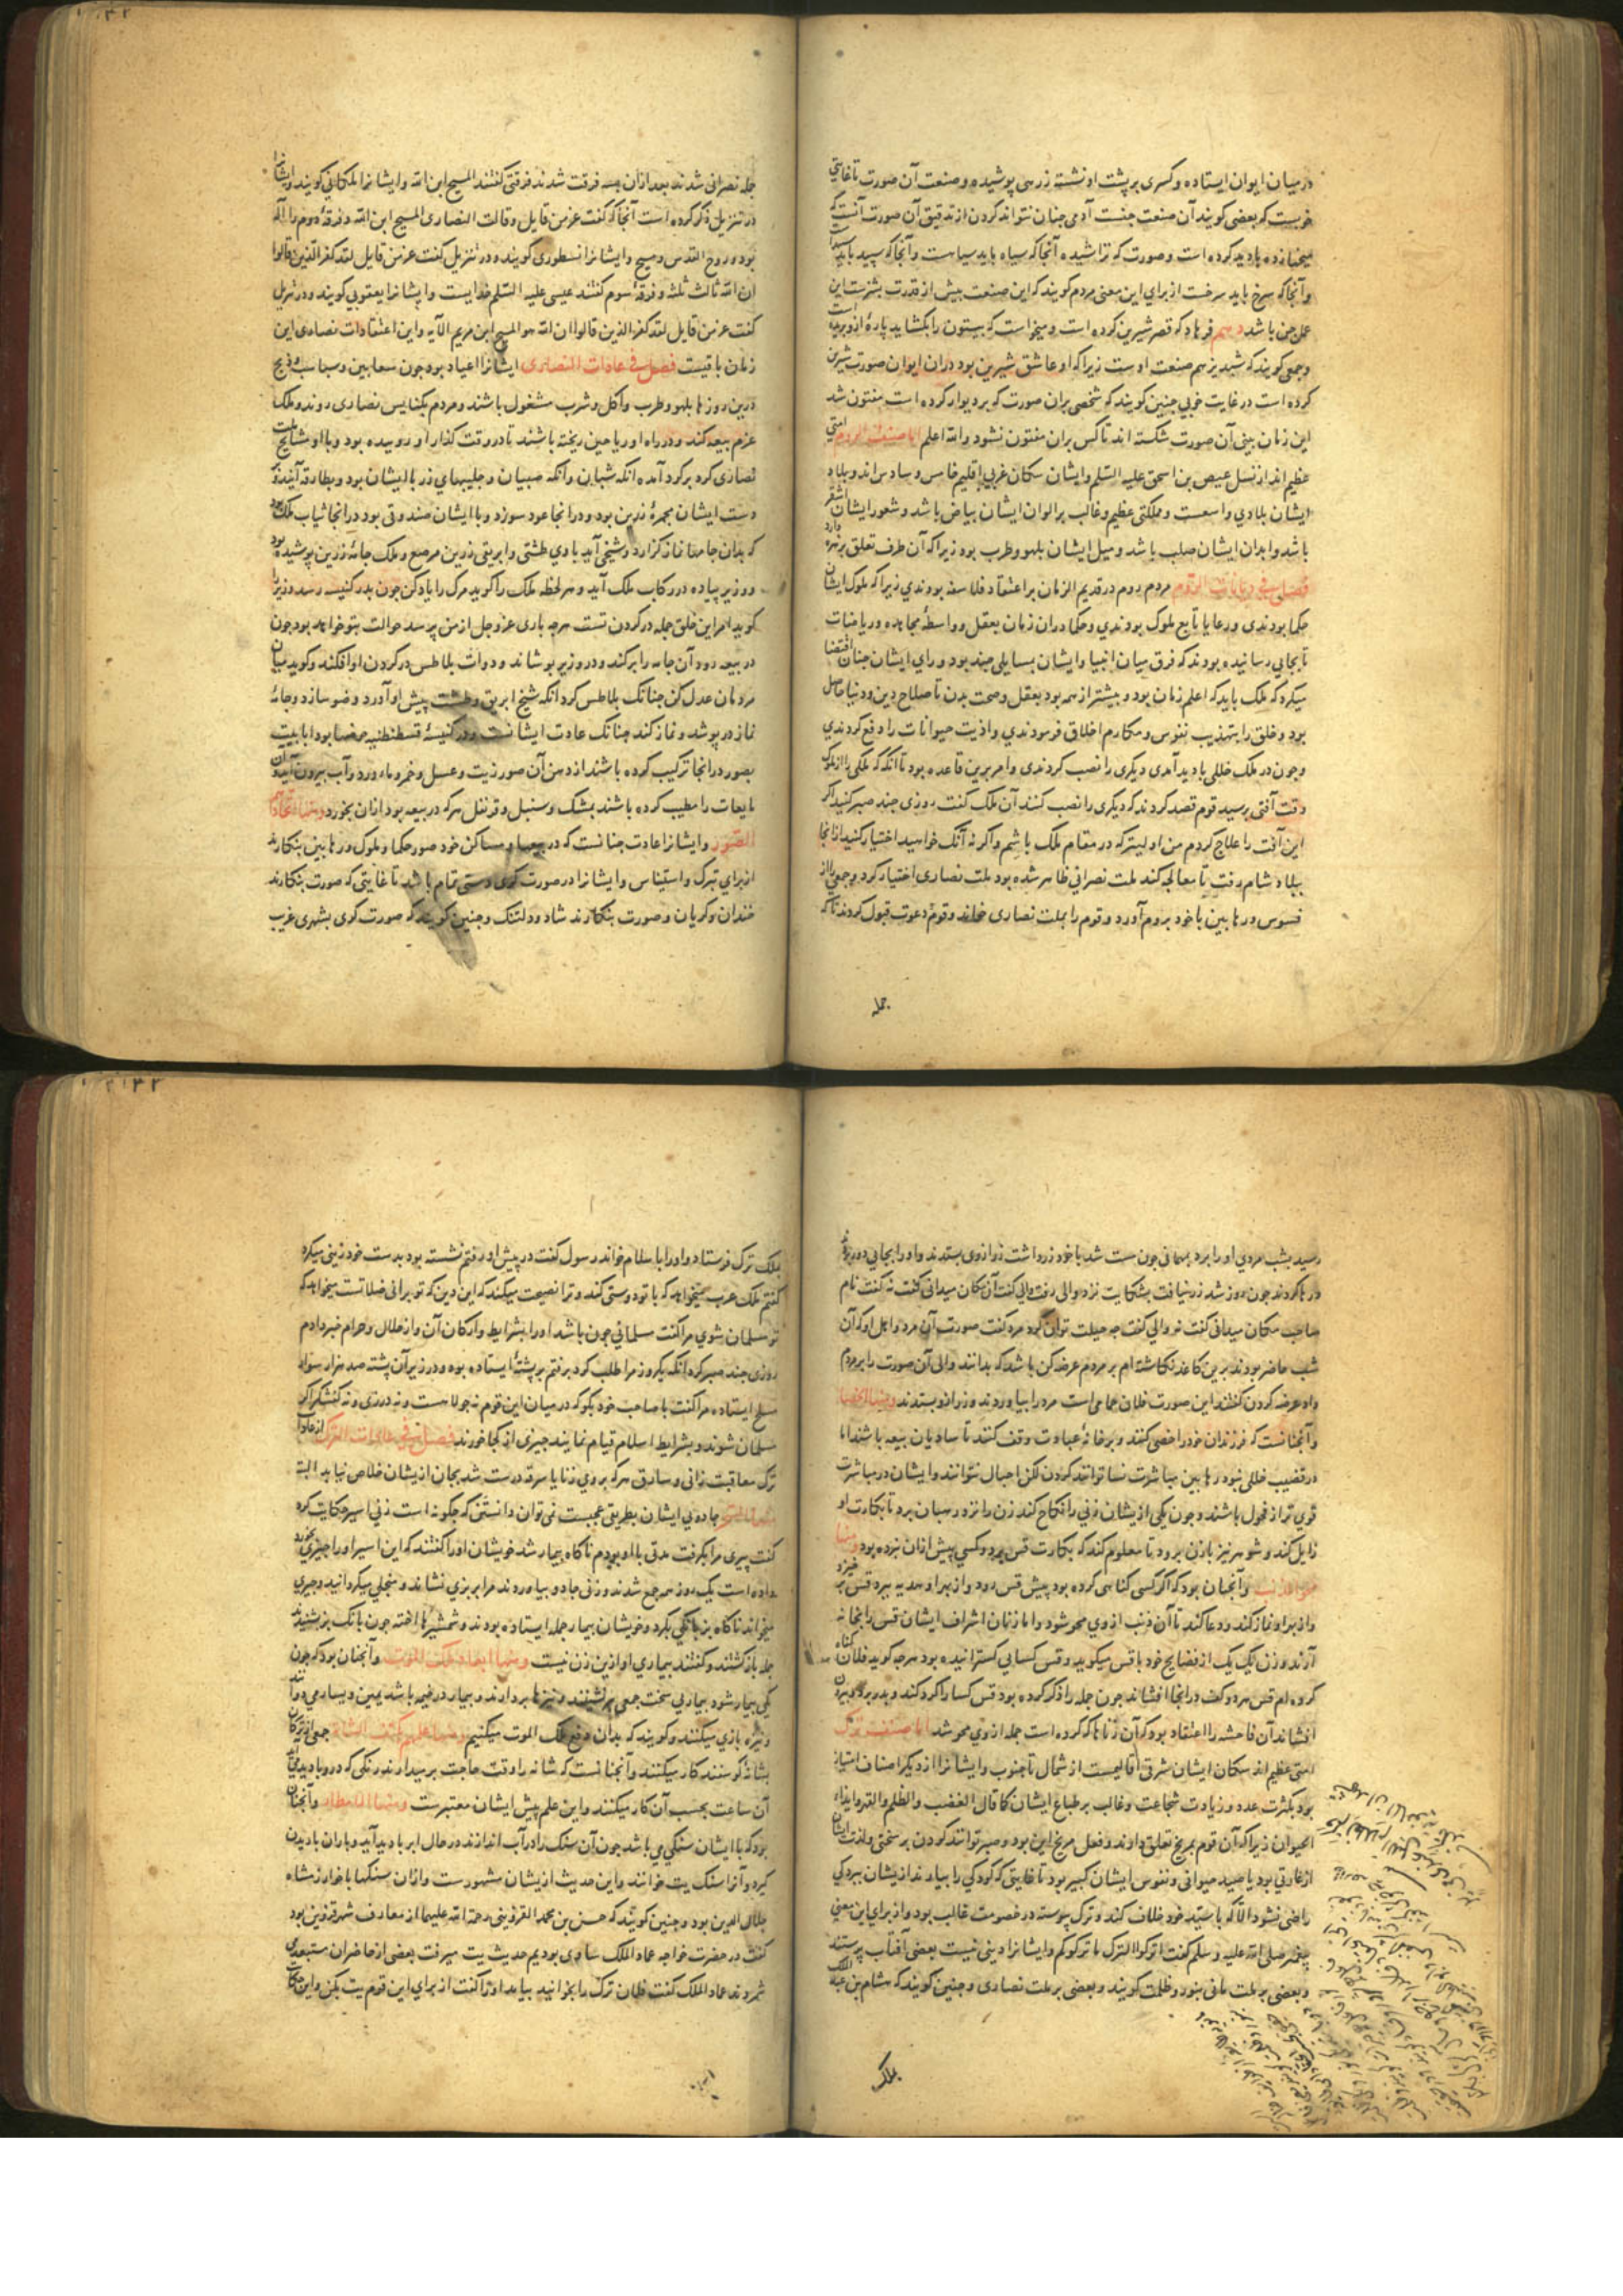 در میان ایوان ایستاده و کسری بر پشت او نشسته زرهی پوشیده و صنعت آن صورت تا غایتی
خوبست که بعضی کویند آن صنعت جنست آدمی جنان نتواند کردن از تدقیق آن صورت آنست که
میخها زده بادید کرده است و صورت که تراشیده آنجا که سیاه باید سیاهست و آنجا که سپید باید
و آنجا که سرخ باید سرخست از برای این معنی مردم کویند که این صنعت بیش از قدرت بشرست این
عمل جن باشد فرهاد که قصر شیرین کرده است و میخواست که بیستون را بکشاید پارهٔ ازو بریده
و جمعی کویند که شبدیز هم صنعت اوست زیرا که او عاشق شیرین بود در آن ایوان صورت شیرین
کرده است در غایت خوبی جنین کویند که شخصی بران صورت که بر دیوار کرده است مفتون شد
این زمان بینی آن صورت شکسته اند تا کس بران مفتون نشود والله اعلم اما صنعت الروم امتی
عظیم اند از نسل عیص بن اسحق علیه السلم و ایشان سکان غربی اقلیم خامس و سادس اند و بلاد
ایشان بلادی واسعست و مملکتی عظیم و غالب بر الوان ایشان بیاض باشد و شعور ایشان اشقر
باشد و ابدان ایشان صلب باشد و میل ایشان بلهو و طرب بود زیرا که آن طرف تعلق بزهره دارد
فصل فی دیانات الروم مردم روم در قدیم الزمان بر اعتقاد فلاسفه بودندی زیرا که ملوک ایشان
حکما بودندی و رعایا تابع ملوک بودندی و حکما دران زمان بعقل و واسطهٔ مجاهده و ریاضات
تا بجایی رسانیده بودند که فرق میان انبیا و ایشان بمسایلی جند بود و رای ایشان جنان اقتضا
میکرد که ملک باید که اعلم زمان بود و بیشتر از همه بود بعقل و صحت بدن تا صلاح دین و دنیا حاصل
بود و خلق را بتهذیب نفوس و مکارم اخلاق فرمودندی و اذیت حیوانات را دفع کردندی
و جون در ملک خللی بادید آمدی دیکری را نصب کردندی و امر برین قاعده بود تا آنکه که ملکی را از ملوک
وقت آفتی برسید قوم قصد کردند که دیکری را نصب کنند آن ملک کفت روزی جند صبر کنید اکر
این آفت را علاج کردم من اولیترکه در مقام ملک باشم و اکر نه آنک خواهید اختیار کنید از آنجا
ببلاد شام رفت تا معالجه کند ملت نصرانی ظاهر شده بود ملت نصاری اختیار کرد و جمعی را از
قسوس و رهابین با خود بروم آورد و قوم را بملت نصاری خواند و قوم دعوت قبول کردند تا که
جمله
جمله نصرانی شدند بعد ازان سه فرقت شدند فرقتی کفتند المسیح ابن الله و ایشانرا ملکانی کویند و ایشانرا
در تنزیل ذکر کرده است آنجا که کفت عز من قایل و قالت النصاری المسیح ابن الله و فرقهٔ دوم را آله
بود و روح القدس و مسیح و ایشانرا نسطوری کویند و در تنزیل کفت عز من قایل لقد کفر الذین قالوا
ان الله ثالث ثلثه و فرقهٔ سوم کفتند عیسی علیه السلم خداییست و ایشانرا یعقوبی کویند و در تنزیل
کفت عز من قایل لقد کفر الذین قالوا ان الله هو المسیح ابن مریم الآیه و این اعتقادات نصاری این
زمان باقیست فصل فی عادات النصاری ایشانرا اعیاد بود جون سعانین و سباسب و دنح
درین روزها بلهو و طرب و اکل و شرب مشغول باشند و مردم بکنایس نصاری روند و ملک
عزم بیعه کند و در راه او ریاحین ریخته باشند تا در وقت کذار او روییده بود و با او مشایخ ملت
نصاری کرد بر کرد آمده آنکه شبان و آنکه صبیان و جلیبهای زر با ایشان بود و بطارقه آیند و
دست ایشان مجمرهٔ زرین بود و در آنجا عود سوزد و با ایشان صندوقی بود در آنجا ثیاب ملک بود
که بدان جامها نماز کزارد و شیخی آید با وی طشتی و ابریقی زرین مرصع و ملک جامهٔ زرین پوشیده بود
و وزیر پیاده در رکاب ملک آید و هر لحظه ملک را کوید مرک را یاد کن جون بدر کنیسه رسد وزیر را
کوید امر این خلق جمله در کردن تست هرجه باری عز و جل از من پرسد حوالت بتو خواهد بود جون
در بیعه رود آن جامه را برکند و در وزیر پوشاند و دوات بلاطس در کردن او افکند و کوید میان
مردمان عدل کن جنانک بلاطس کرد آنکه شیخ ابریق و طشت پیش او آورد وضو سازد و جامهٔ
نماز در پوشد و نماز کند جنانک عادت ایشانست و در کنیسهٔ قسطنطنیه حوضها بود انابیب
بصور در آنجا ترکیب کرده باشند از دهن آن صور زیت و عسل و خمر و ماء ورد و آب بیرون آید و آن
مایعات را مطیب کرده باشند بمشک و سنبل و قرنفل هر که در بیعه بود ازان بخورد و منها اتخاذهم
الصور و ایشانرا عادت جنانست که در بیعها و مساکن خود صور حکما و ملوک و رهابین بنکارند
از برای تبرک و استیناس و ایشانرا در صورت کری دستی تمام باشد تا غایتی که صورت بنکارند
خندان و کریان و صورت بنکارند شاد و دلتنک و جنین کویند که صورت کری بشهری غریب
رسید بشب مردی او را برد بمهمانی جون مست شد با خود زر داشت زر ازوی بستدند و او را بجایی دور برده
رها کردند جون روز شد زر نیافت بشکایت نزد والی رفت والی کفت آن مکان میدانی کفت نه کفت نام
صاحب مکان میدانی کفت نه والی کفت جه حیلت توان کرد مرد کفت صورت آن مرد و اهل او که آن
شب حاضر بودند برین کاغذ نکاشته ام بر مردم عرضه کن باشد که بدانند والی آن صورت را بر مردم
داد عرضه کردن کفتند این صورت فلان حمامی است مرد را بیاوردند و زر ازو بستدند و منها الخصا
و آنجنانست که فرزندان خود را خصی کنند و بر خانهٔ عبادت وقف کنند تا سادنان بیعه باشند اما
در قضیب خللی نبود رهابین مباشرت نسا توانند کردن لکن احبال نتوانند و ایشان در مباشرت
قوی تر از فحول باشند و جون یکی ازیشان زنی را نکاح کند زن را نزد رهبان برد تا بکارت او
زایل کند و شوهر نیز با زن برود تا معلوم کند که بکارت قس برد و کسی پیش ازان نبرده بود و منها
و آنجنان بود که اکر کسی کناهی کرده بود پیش قس رود و از بهر او هدیه ببرد قس بر خیزد
و از بهر او نماز کند و دعا کند تا آن ذنب از وی محو شود و اما زنان اشراف ایشان قس را بخانه
آرند و زن یک یک از فضایح خود با قس میکوید و قس کسایی کسترانیده بود هرجه کوید فلان کناه
کرده ام قس هر دو کف در آنجا افشاند جون جمله را ذکر کرده بود قس کسا را کرد کند و بدر برد و بیرون
افشاند آن فاحشه را اعتقاد بود که آن زناها که کرده است جمله ازوی محو شد اما صنف ترک
امتی عظیم اند سکان ایشان شرقی اقالیمست از شمال تا جنوب و ایشانرا از دیکر اصناف امتیاز
بود بکثرت عدد و زیادت شجاعت و غالب بر طباع ایشان کما قال الغضب و الظلم و القهر و ایذاء
الحیوان زیرا که آن قوم بمریخ تعلق دارند و فعل مریخ این بود و صبر توانند کردن بر سختی و لذت ایشان
از غارتی بود یا صید حیوانی و نفوس ایشان کبیر بود تا غایتی که کودکی را بیاورند ازیشان ببردکی
راضی نشود الا که با سید خود خلاف کند و ترک پیوسته در خصومت غالب بود و از برای این معنی
پیغمبر صلی الله علیه و سلم کفت اترکوا الترک ما ترکوکم و ایشانرا دینی نیست بعضی آفتاب پرستند
و بعضی بر ملت مانی بنور و ظلمت کویند و بعضی بر ملت نصاری و جنین کویند که هشام بن عبد الملک
بملک
بملک ترک فرستاد و او را باسلام خواند رسول کفت در پیش او رفتم نشسته بود بدست خود زینی میکرد
کفتم ملک عرب میخواهد که با تو دوستی کند و ترا نصیحت میکند که این دین که تو برانی ضلالتست میخواهد که
تو مسلمان شوی مرا کفت مسلمانی جون باشد او را بشرایط و ارکان آن و از حلال و حرام خبر دادم
روزی جند صبر کرد آنکه یکروز مرا طلب کرد برفتم بر پشتهٔ ایستاده بود و در زیر آن پشته صد هزار سوار
مسلح ایستاده مرا کفت با صاحب خود بکو که در میان این قوم نه جولاهست و نه درزی و نه کفشکر اکر
مسلمان شوند و بشرایط اسلام قیام نمایند جیزی از کجا خورند فصل فی عادات الترک از عادات
ترک معاقبت زانی و سارق هر که بروی زنا یا سرقه درست شد بجان ازیشان خلاص نیابد البته
جادویی ایشان بطریقی عجیبست نمی توان دانستن که جکونه است زنی اسیر حکایت کرد
کفت پیری مرا بکرفت مدتی با او بودم ناکاه بیمار شد خویشان او را کفتند که این اسیر او را جیزی بخورد
داده است یک روز همه جمع شدند و زنی جادو بیاوردند مرا بر بزی نشاند و منجلی میکردانید و جیزی
میخواند ناکاه بز بانکی بکرد و خویشان بیمار جمله ایستاده بودند و شمشیرها آخته جون بانک بز شنیدند
جمله بازکشتند و کفتند بیماری او ازین زن نیست و منها ابعاد ملک الموت و آنجنان بود که جون
یکی بیمار شود بیماری سخت جمعی بر نشینند و نیزها بردارند و بیمار در خیمه باشد یمین و یسار می دوانند
و نیزه بازی میکنند و کویند که بدان دفع ملک الموت میکنیم و منها علمهم کتف الشاة جمعی از ترکان
بشانهٔ کوسفند کار میکنند و آنجنانست که شانه را وقت حاجت بر میدارند رنکی که درو بادید آید
آن ساعت بحسب آن کار میکنند و این علم پیش ایشان معتبرست و منها الامطار و آنجنان
بود که با ایشان سنکی می باشد جون آن سنک را در آب اندازند در حال ابر بادید آید و باران باریدن
کیرد و آنرا سنک یت خوانند و این حدیث ازیشان مشهورست و ازان سنکها با خوارزمشاه
جلال الدین بود و جنین کویند که حسن بن محمد القزوینی رحمة الله علیهما از معارف شهر قزوین بود
کفت در حضرت خواجه عماد الملک ساوی بودیم حدیث یت میرفت بعضی از حاضران مستبعد می
شمردند عماد الملک کفت فلان ترک را بخوانید بیامد او را کفت از برای این قوم یت بکن و این حکایت